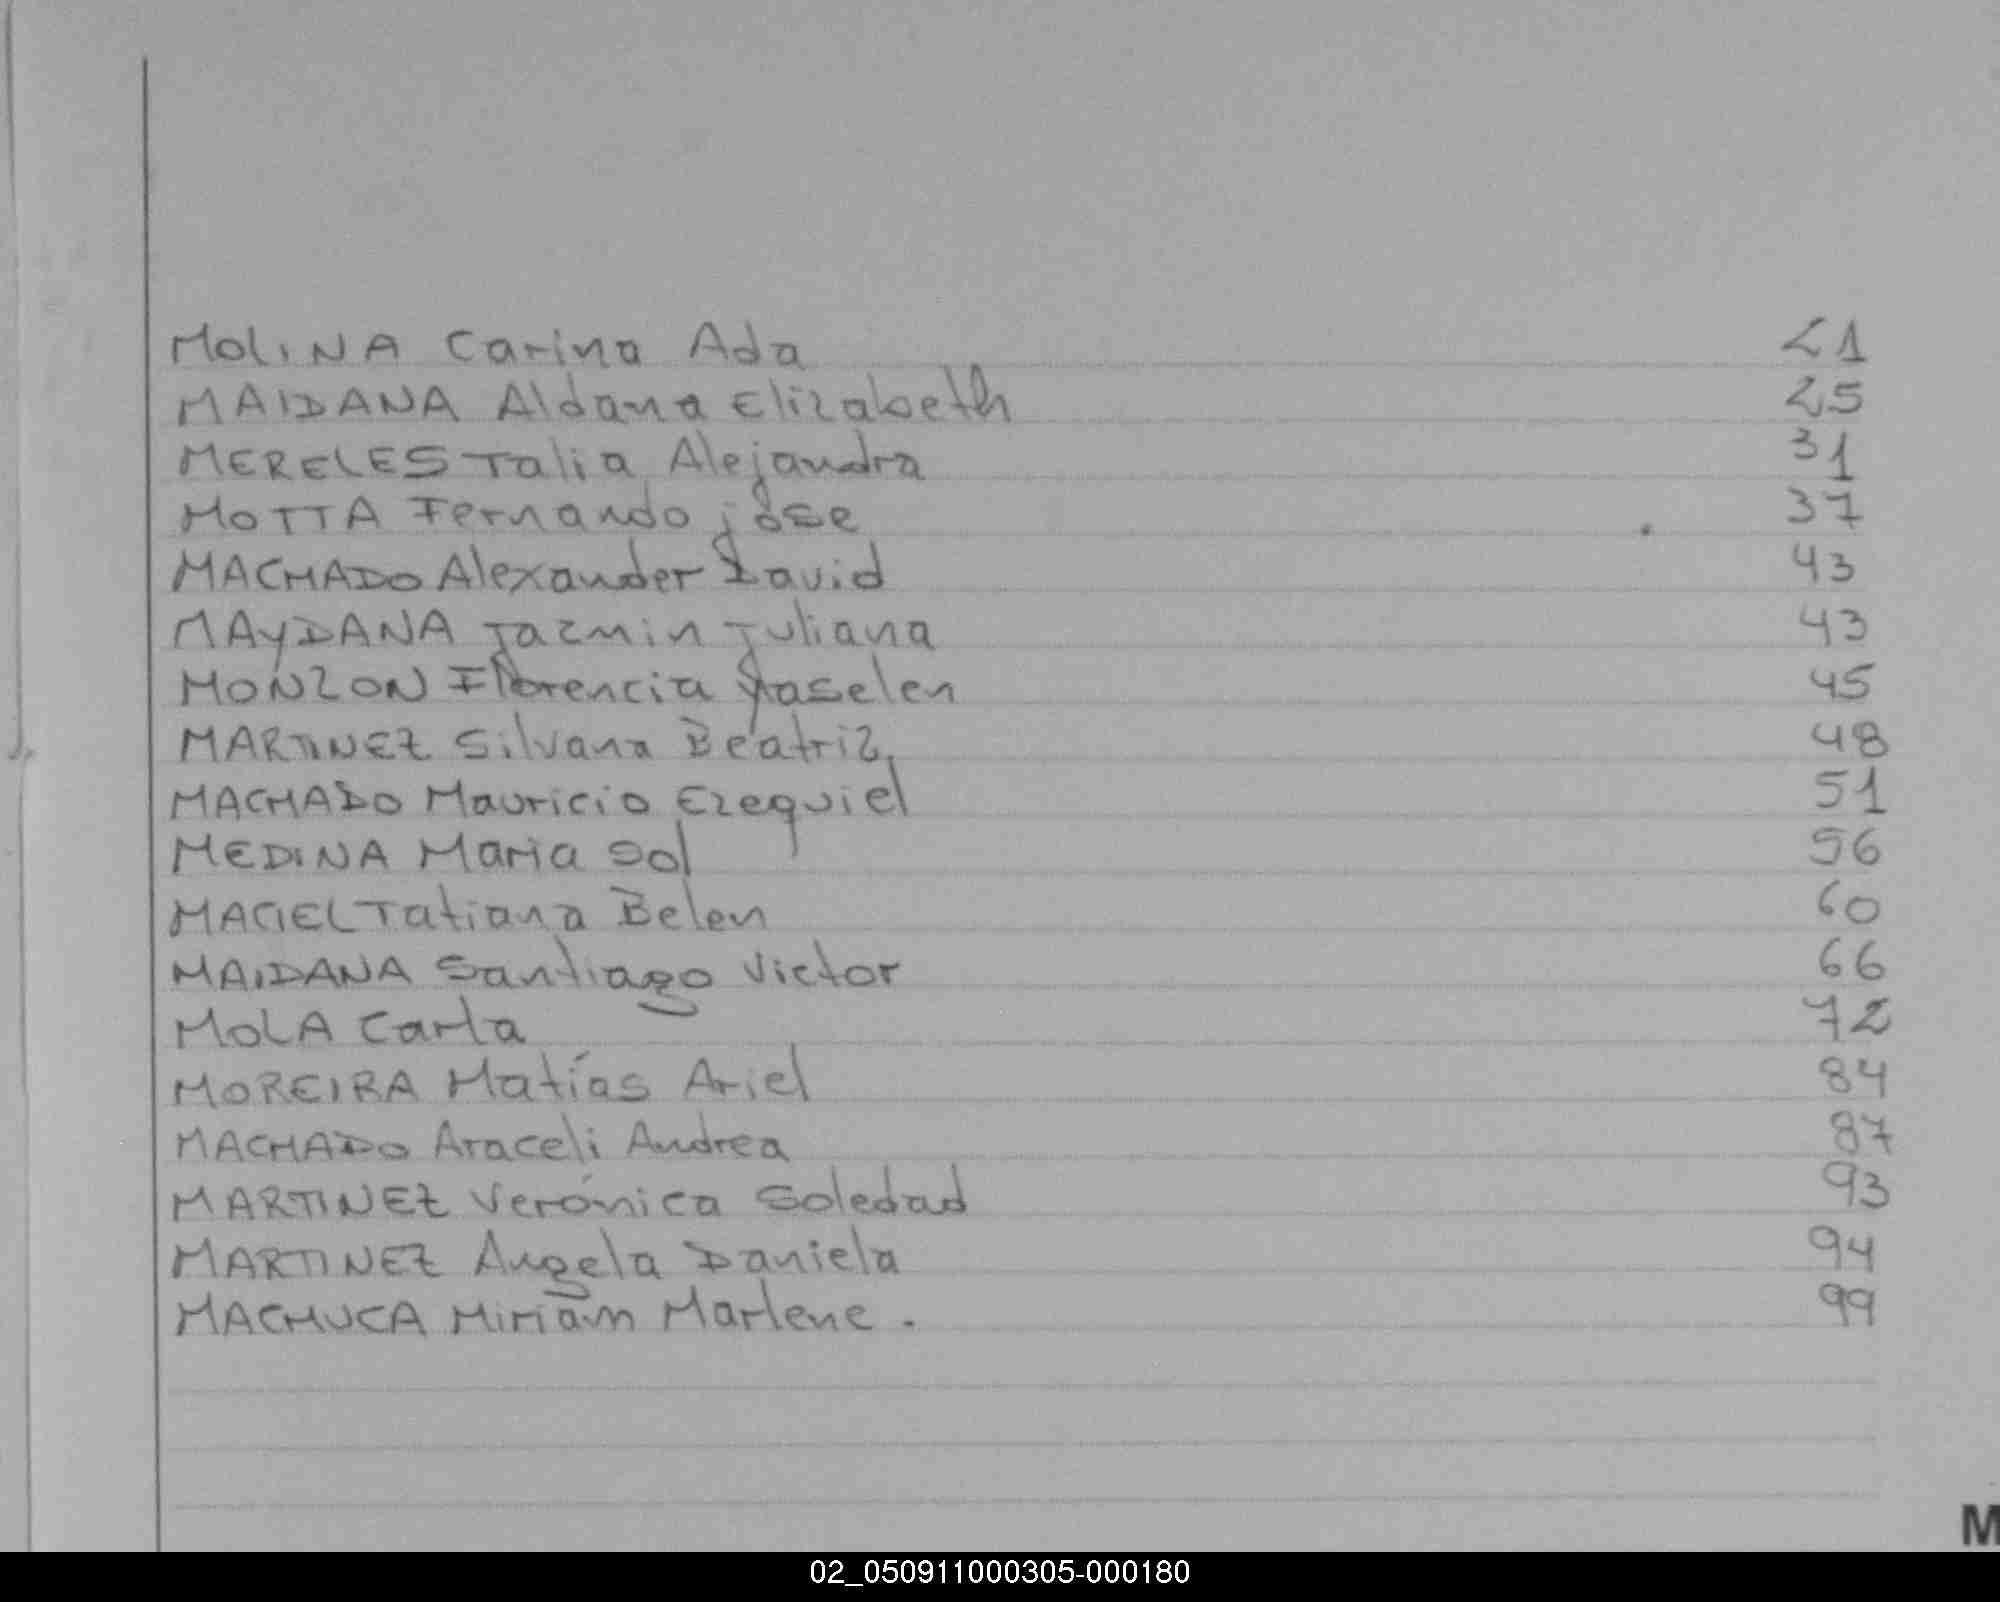 MOLINA Carina Ada 21
MAIDANA Aldana Elizabeth 25
MERELES Talia Alejandra 31
MOTTA Fernando jose 37
MACHADO Alexander David 43
MAYDANA Jazmin Juliana 43
MONZON Florencia Yaselen 45
MARTINEZ Silvana Beatriz 48
MACHADO Mauricio Ezequiel 51
MEDINA Maria Sol 56
MACIEL Tatiana Belen 60
MAIDANA Santiago Victor 66
MOLA Carla 72
MOREIRA Matías Ariel 84
MACHADO Araceli Andrea 87
MARTINEZ Verónica Soledad 93
MARTINEZ Angela Daniela 94
MACHUCA Miriam Marlene . 99
M
02_050911000305-000180